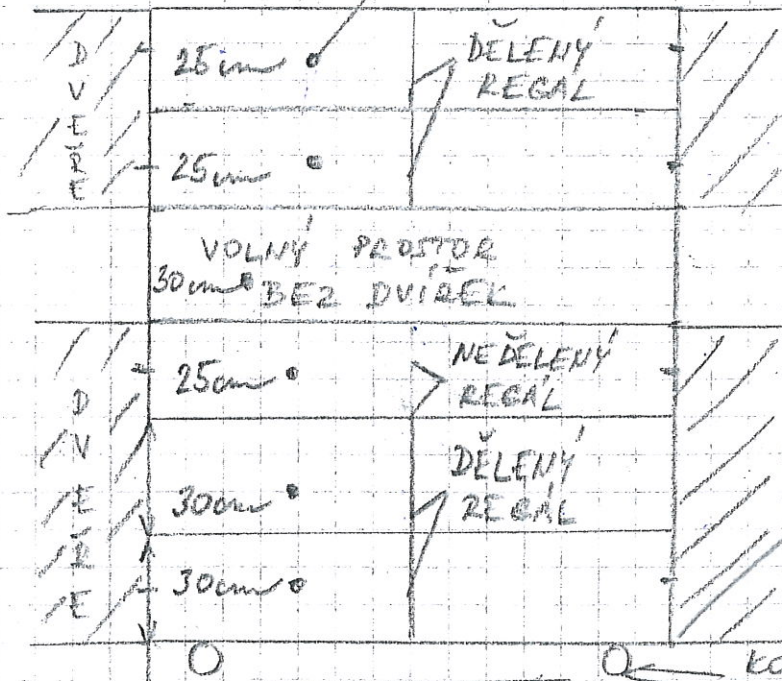 DVEŘE
25cm
DĚLENÝ
REGÁL
25cm
VOLNÝ PROSTOR
30cm BEZ DVÍŘEK
DVEŘE
25cm
NEDĚLENÝ
REGÁL
30cm
DĚLENÝ
REGÁL
30cm